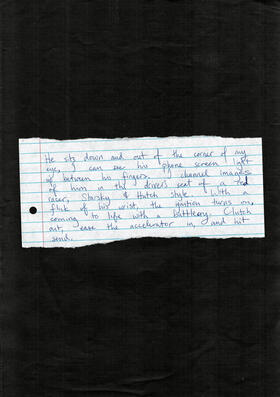 He sits down and out of the corner of my
eye, I can see his phone screen light
up between his fingers. I channel images
of him in the drivers seat of a red
racer, Starsky & Hutch style. With a
flick of his wrist, the ignition turns on,
coming to life with a battlecry. Clutch
out, ease the accelerator in, and hit
send.